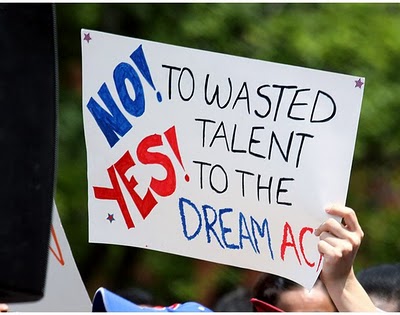 NO! TO WASTED
TALENT
YES! TO THE
DREAM AC